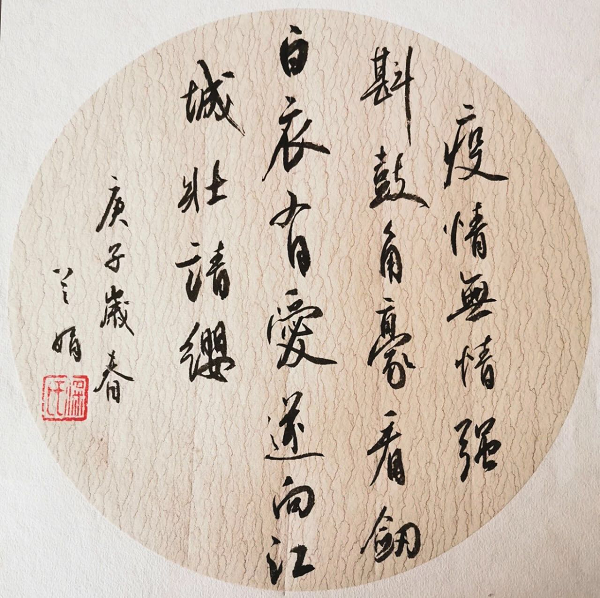 疫情無情强
斟鼓角豪看劍
白衣有愛逆向江
城壯請纓
庚子歲春
兰娟